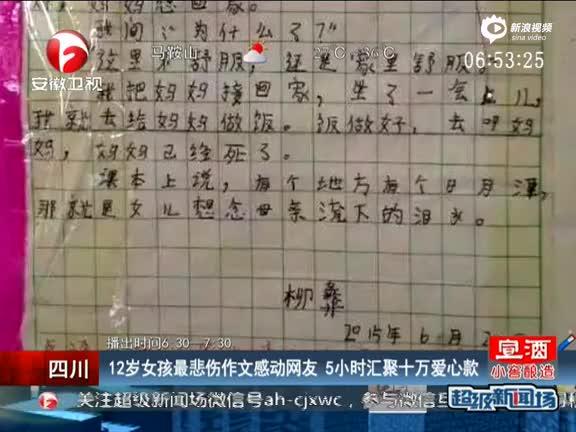 妈妈想回家。
新浪视频
我问:“为什么了?”
马鞍山
06:53:25
安徽卫视
这里不舒服,还是家里舒服。
我把妈妈接回家,坐了一会儿,
我就去给妈妈做饭。饭做好,去叫妈
妈,妈妈已经死了。
课本上说,每个地方每个日月潭,
那就是女儿想念母亲流下的泪水。
柳彝
2015年6月2
播出时间6:30—7:30
四川
12岁女孩最悲伤作文感动网友 5小时汇聚十万爱心款
宣酒
小窖酿造
关注超级新闻场微信号ah-cjxwc,参与微信互
超级新闻场